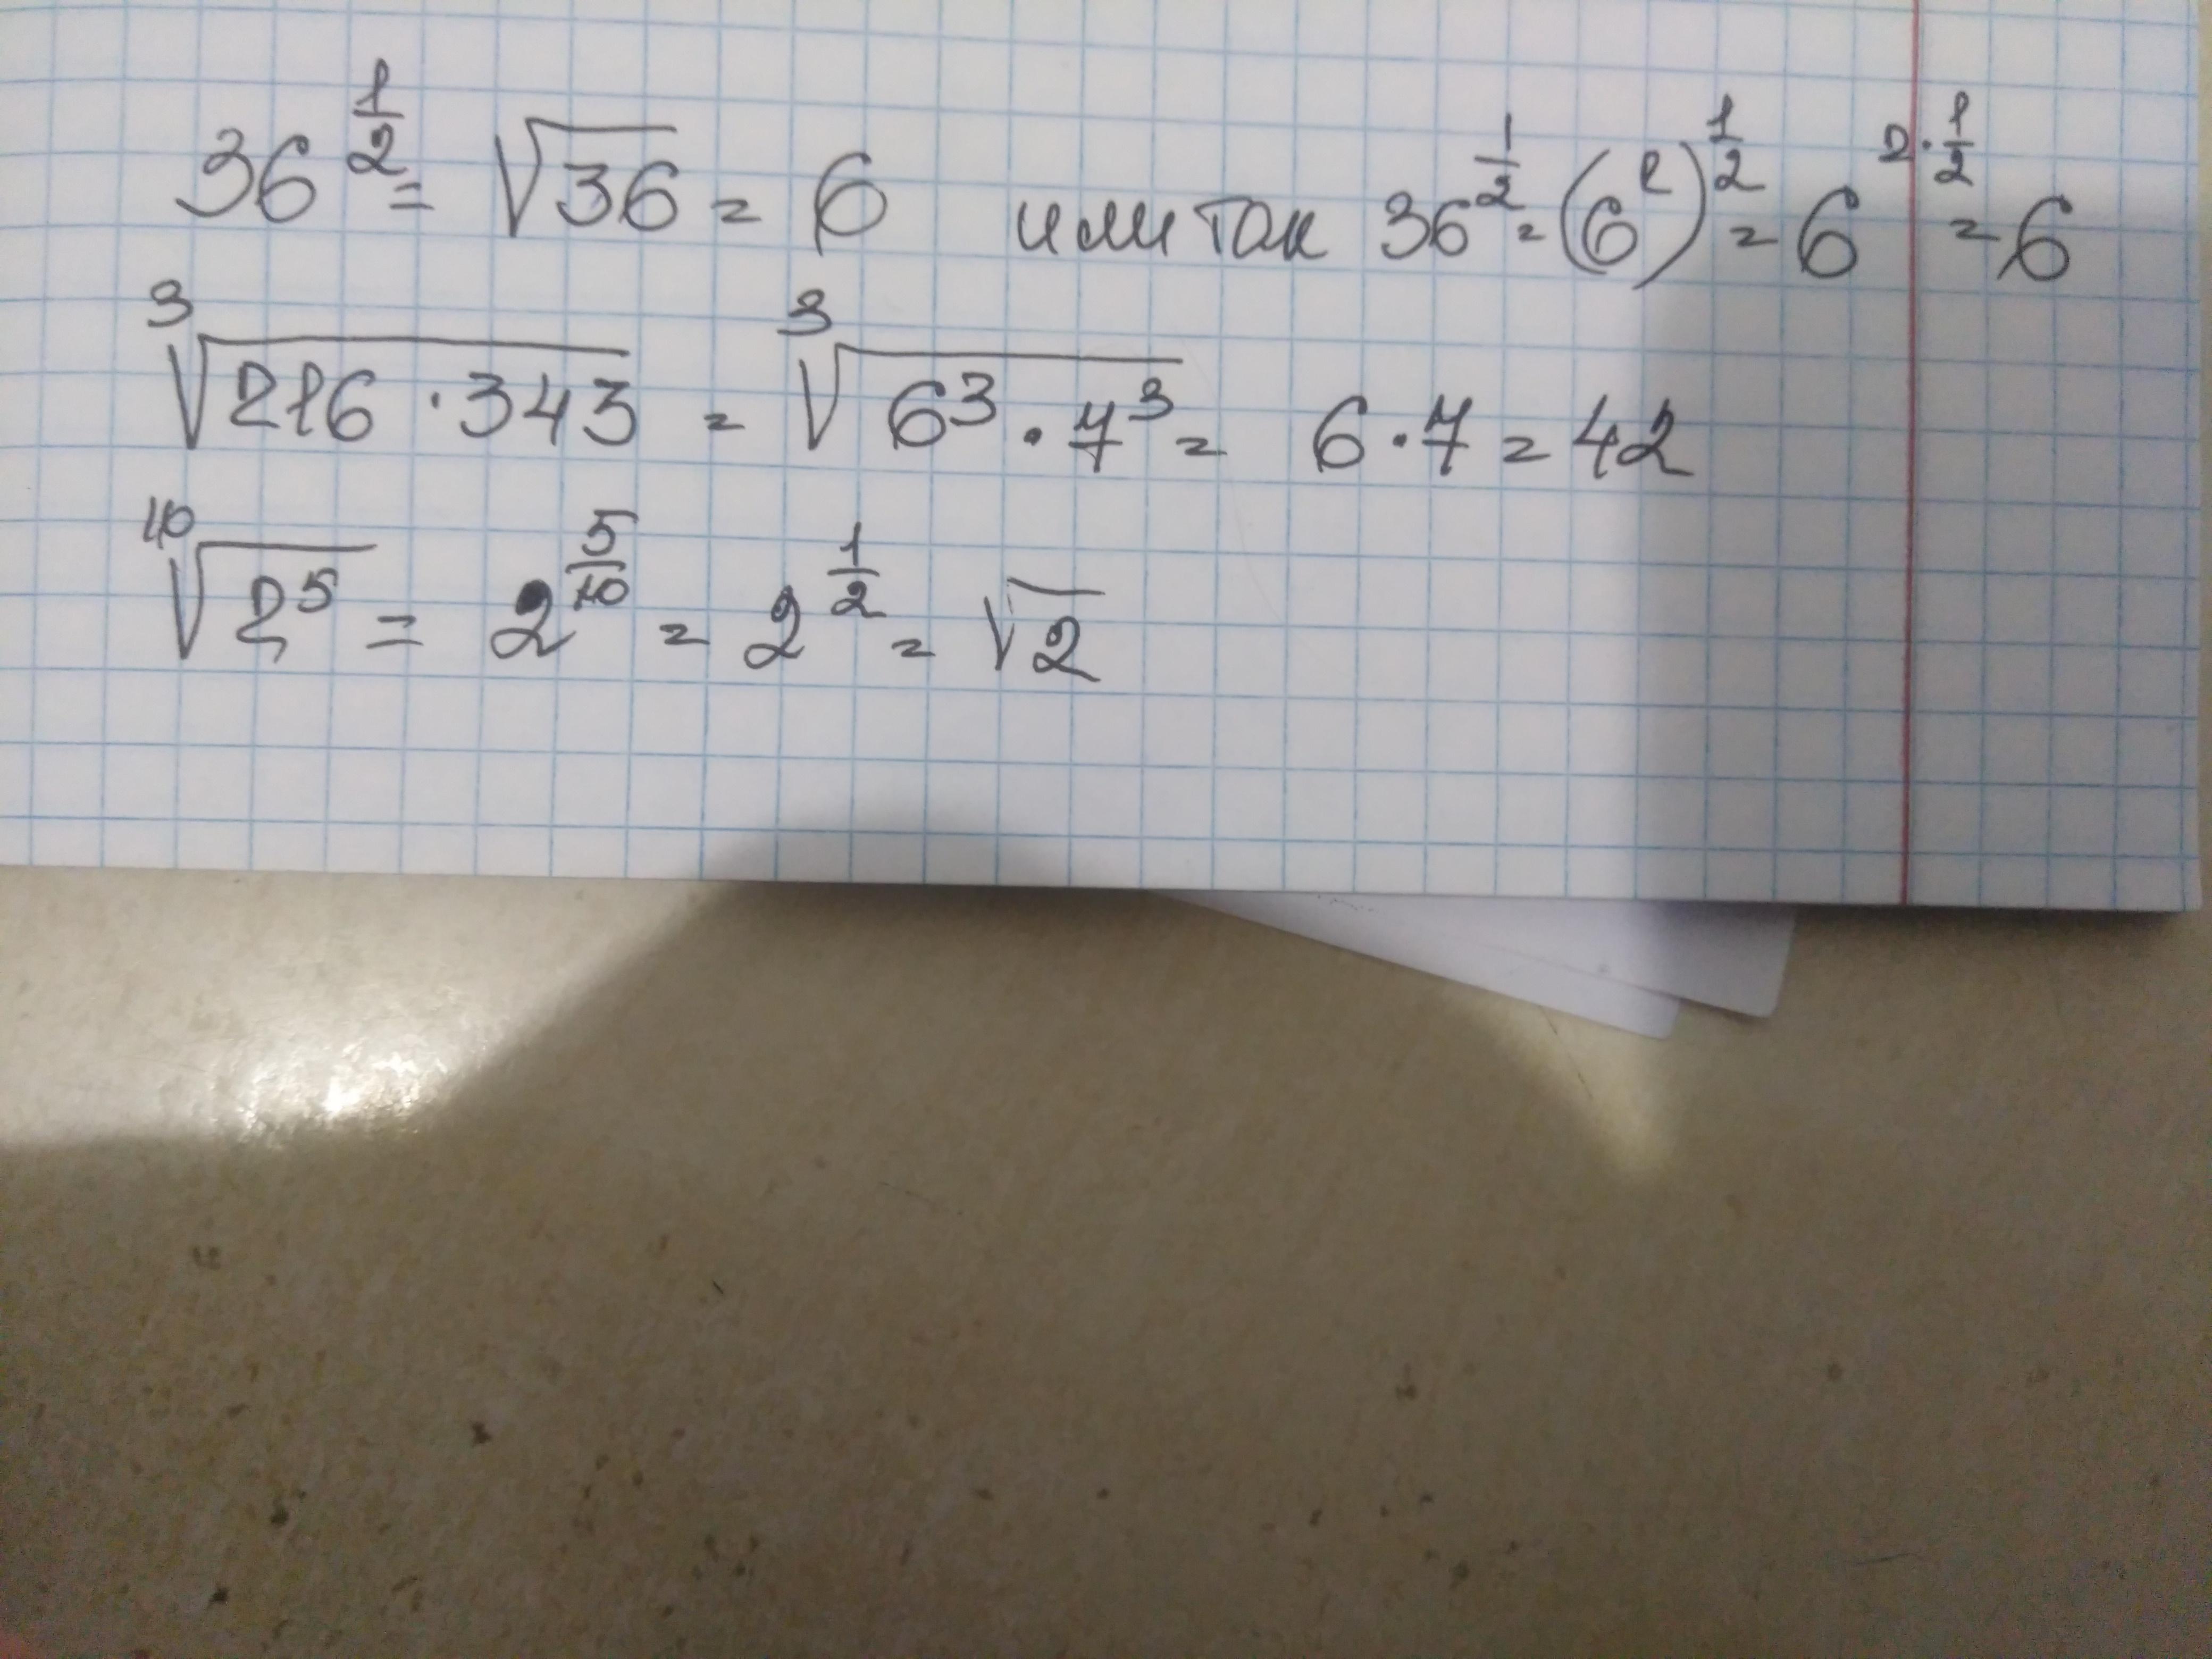 36^{\frac{1}{2}} = \sqrt{36} = 6 или так 36^{\frac{1}{2}} = (6^2)^{\frac{1}{2}} = 6^{2 \cdot \frac{1}{2}} = 6
\sqrt[3]{216 \cdot 343} = \sqrt[3]{6^3 \cdot 7^3} = 6 \cdot 7 = 42
\sqrt[10]{2^5} = 2^{\frac{5}{10}} = 2^{\frac{1}{2}} = \sqrt{2}